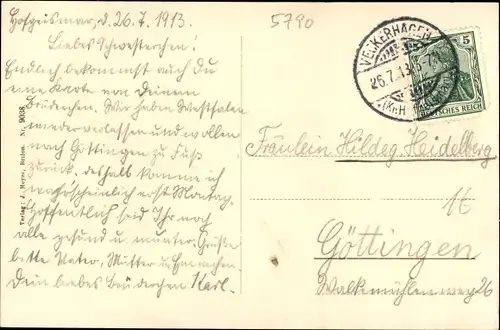 Hofgeismar, d. 26.7.1913.
Liebes Schwesterchen!
Endlich bekommst auch Du
eine Karte von Deinem
Brüderchen. Wir haben Westfalen
wieder verlassen und wollen
nach Göttingen zu Fuß
zurück. Deshalb komme ich
wahrscheinlich erst Montag.
Hoffentlich seid Ihr noch
alle gesund u. munter. Grüße
bitte Vater, Mutter u.
Dein liebes Brüderchen Karl.
Verlag: J. Meyer, Nr. 9038
5790
VECKERHAGEN
26.7.13
5
DEUTSCHES REICH
Fräulein Hildeg. Heidelberg
Göttingen
Walkemühlenweg 26